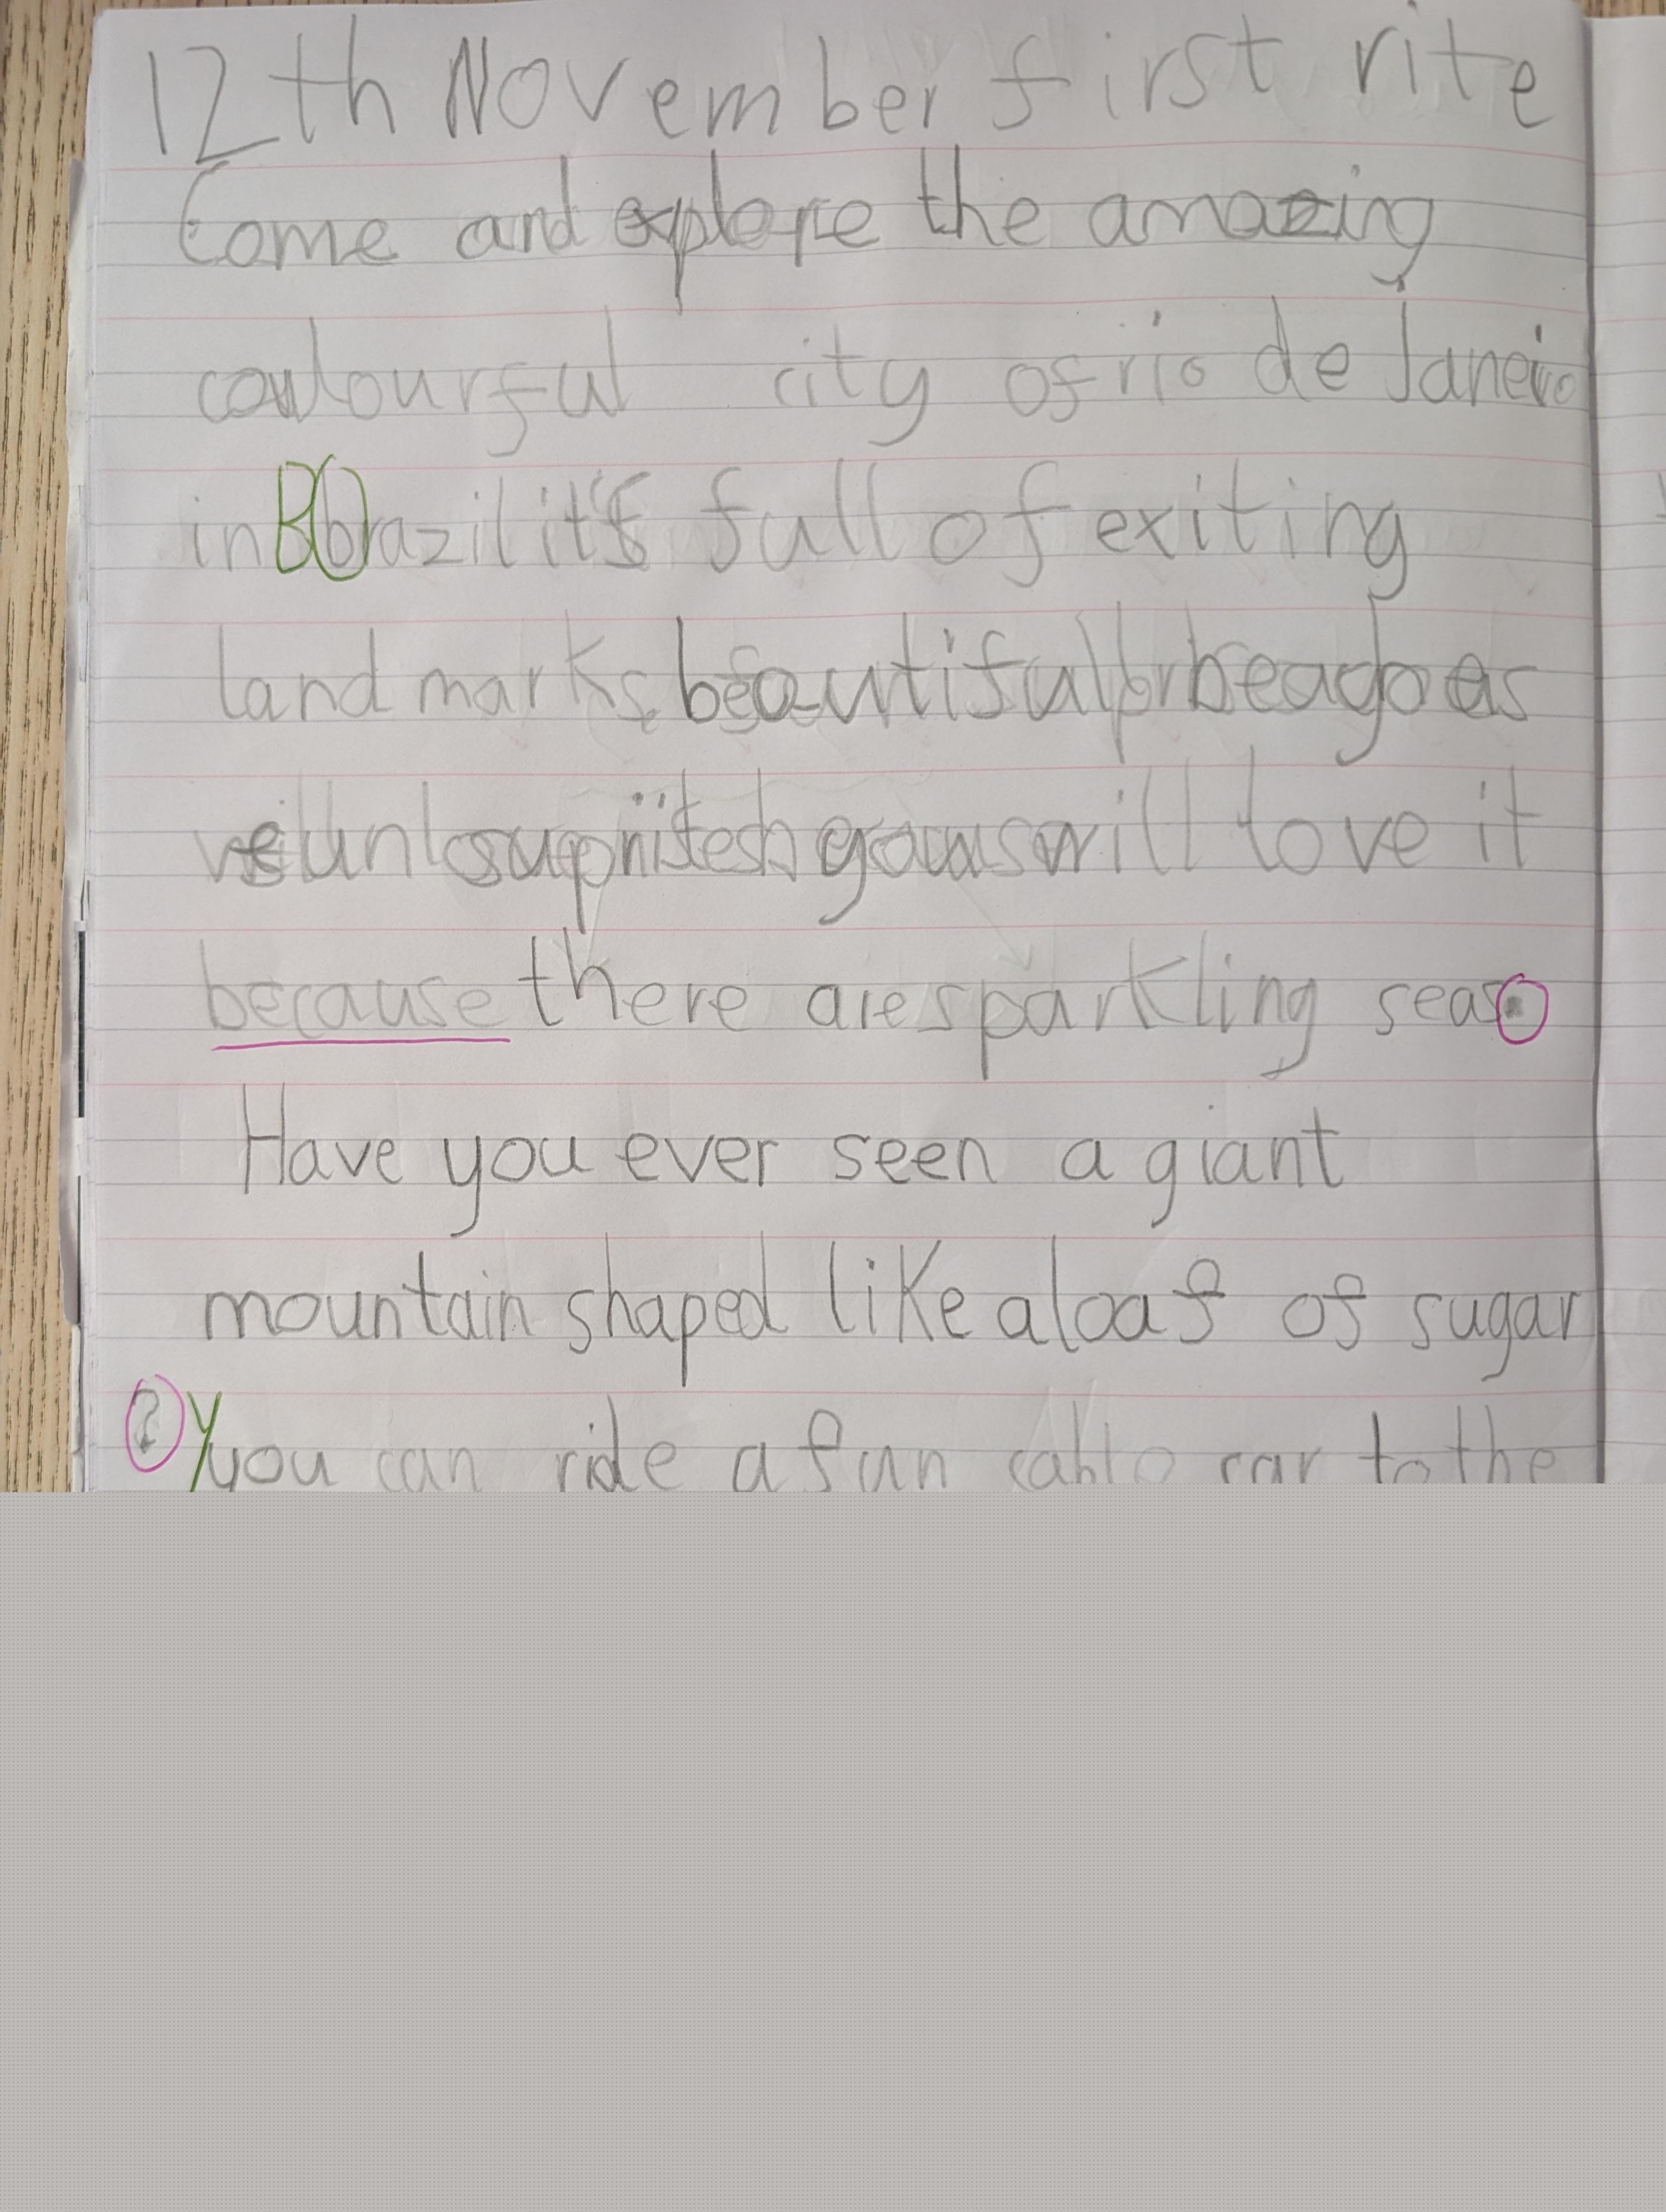 12th November first rite
Come and explore the amazing
coulourful city of rio de Janeiro
in Bbrazil it's full of exiting
landmarks beautiful
will love it
because there are sparkling seas.
Have you ever seen a giant
mountain shaped like a loaf of sugar
? Yyou can ride a fun cable car to the